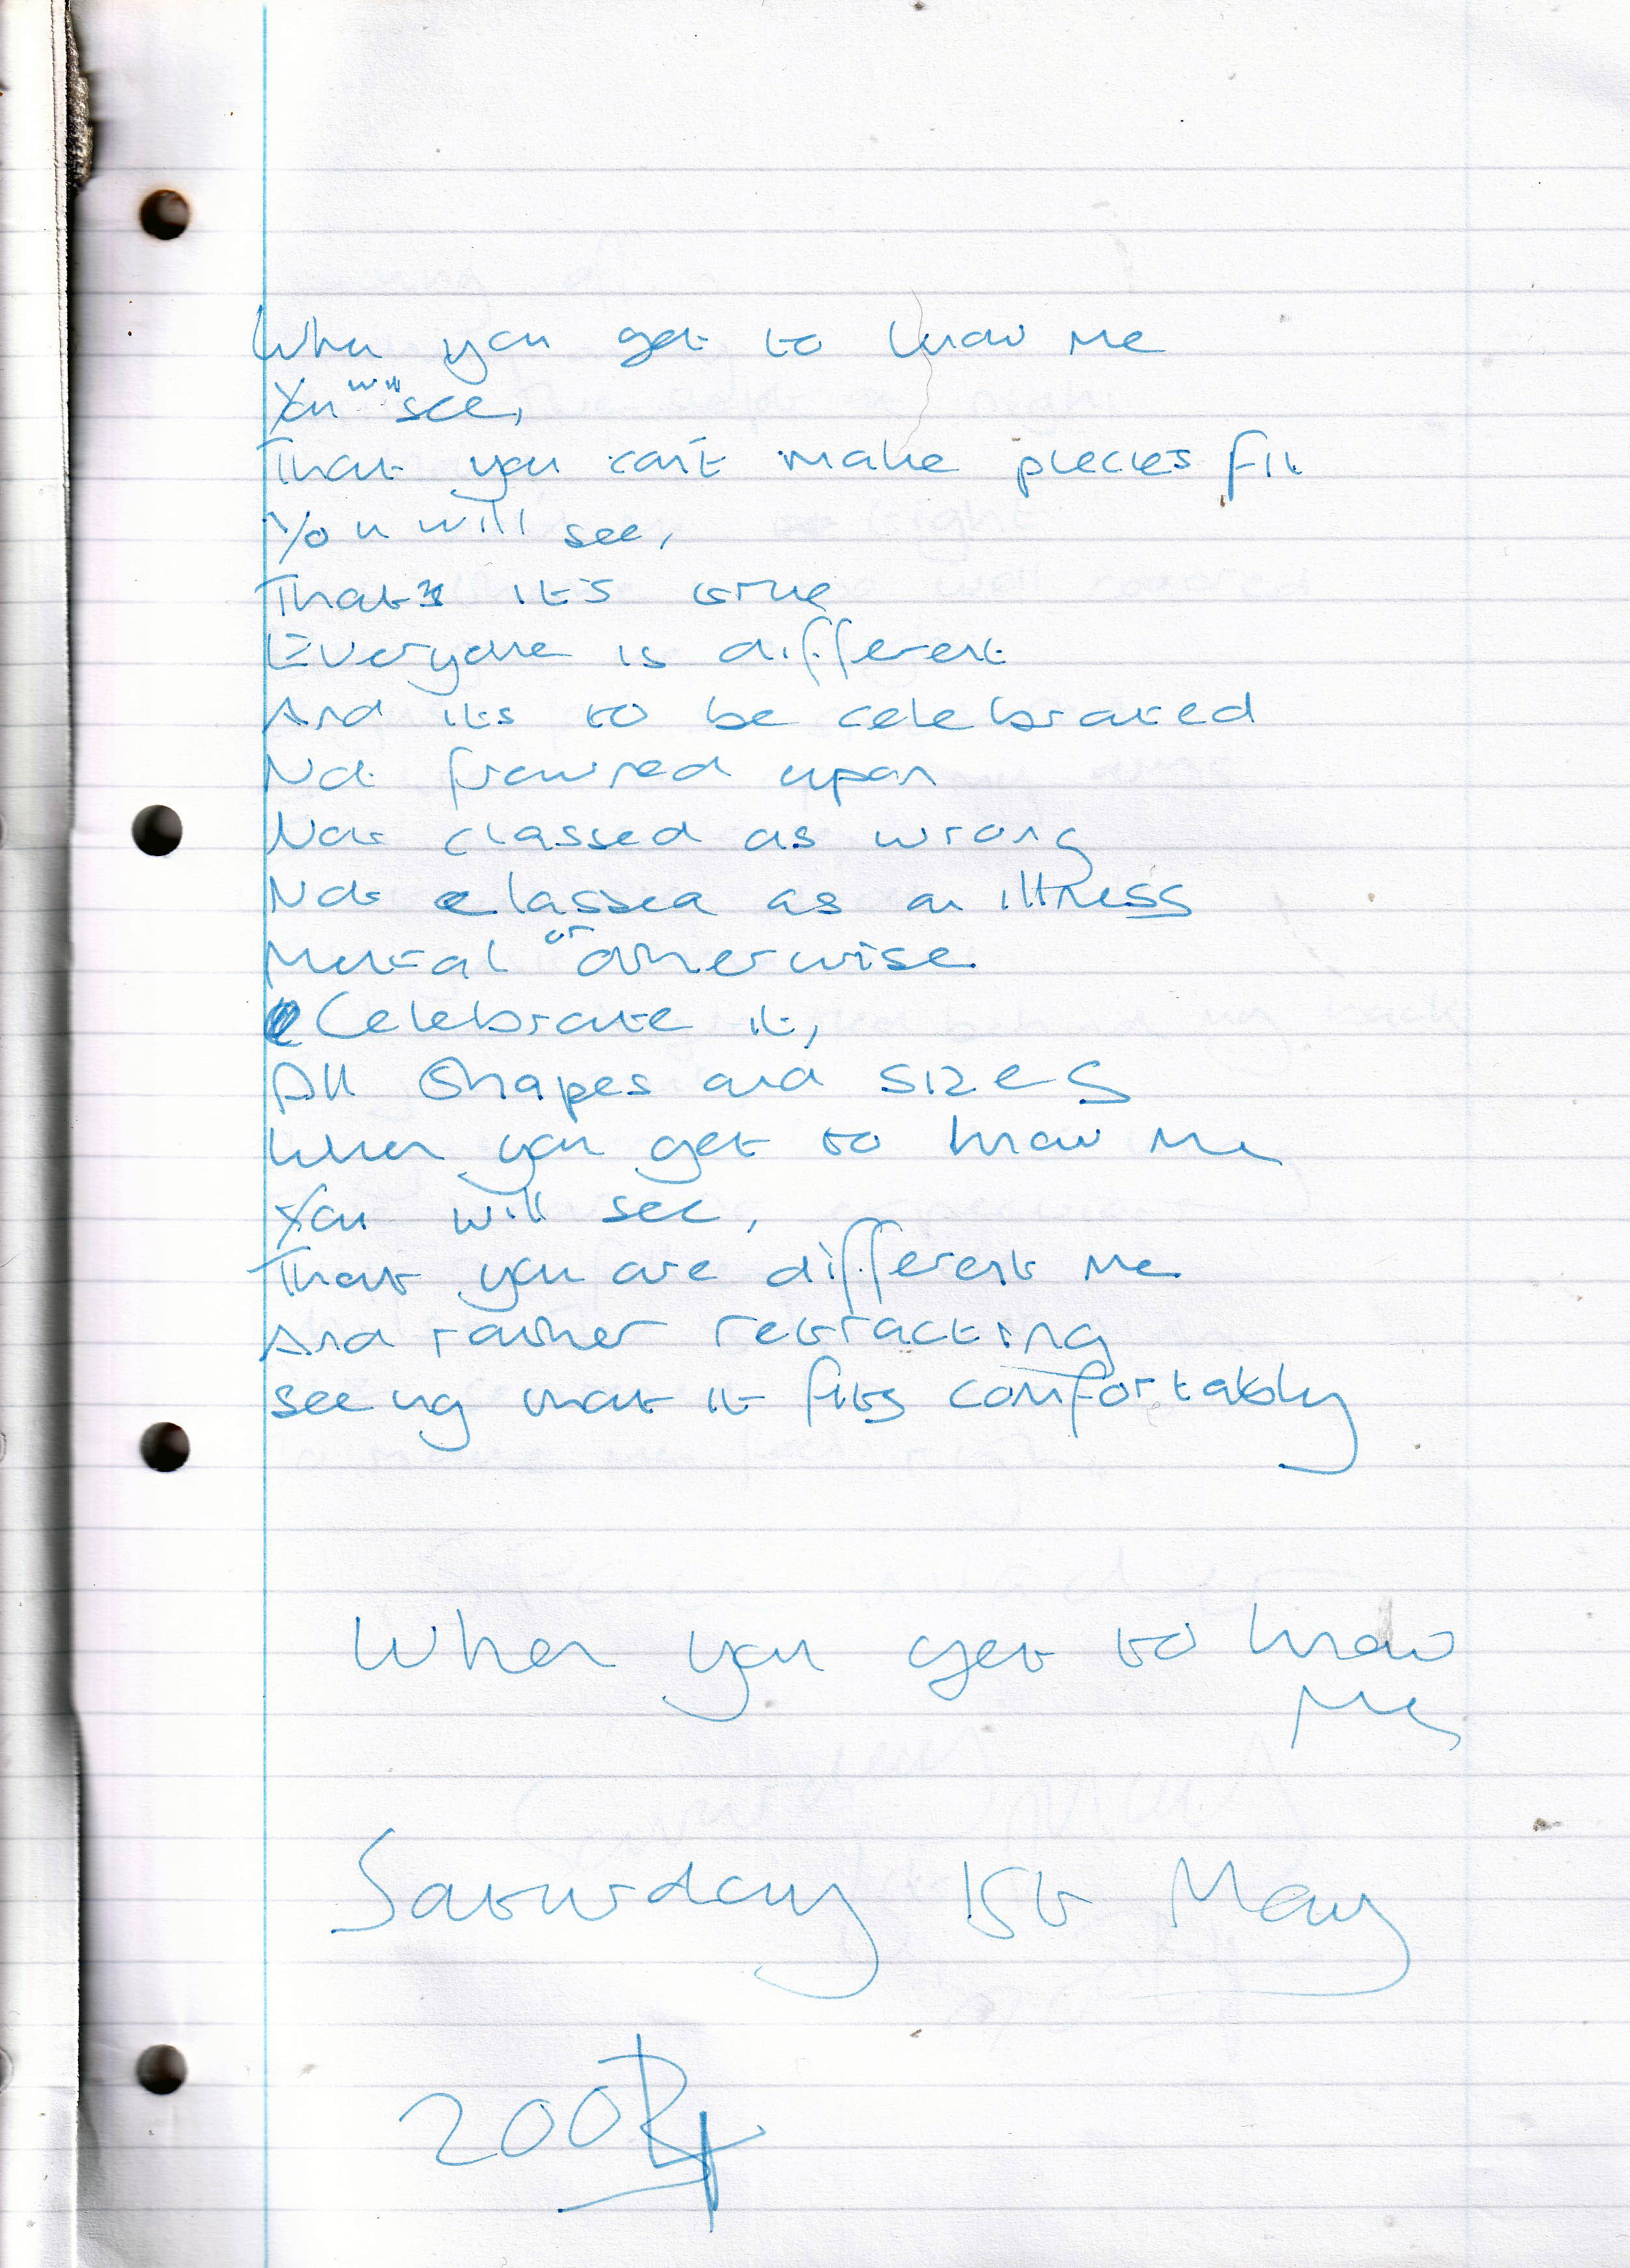 When you get to know me
You will see,
That you can't make piecies fit
You will see,
That it's true
Everyone is different
And its to be celebrated
Not frowned upon
Not classed as wrong
Not classed as an illness
Mental or otherwise
Celebrate it,
All shapes and sizes
When you get to know me
You will see,
That you are different me
And rather retracting
seeing that it fits comfortably
When you get to know
me
Saturday 1st May
2004